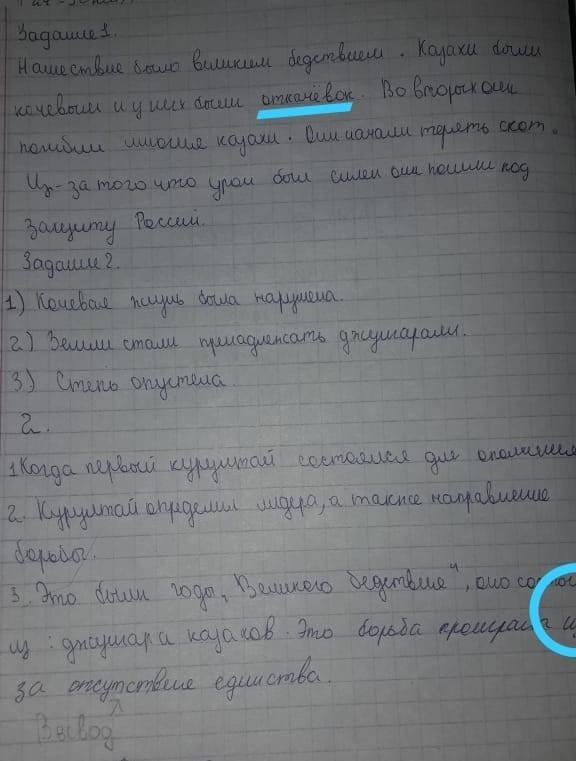 Задание 1.
Нашествие было великим бедствием. Казахи были
кочевым и у них были откочёвок. Во вторых они
погибли многие казахи. Они начали терять скот.
Из-за того что урон был силен они пошли под
защиту Россий.
Задание 2.
1) Кочевая жизнь была нарушена.
2) Земли стали принадлежать джунгарам.
3) Степь опустела.
2.
1 Когда первый курултай состоялся для
2. Курултай определил лидера, а также направление
борьбы.
3. Это были годы „Великого бедствие", оно
из: джунгар и казахов. Это борьба проиграна и
за отсутствие единства.
Вывод